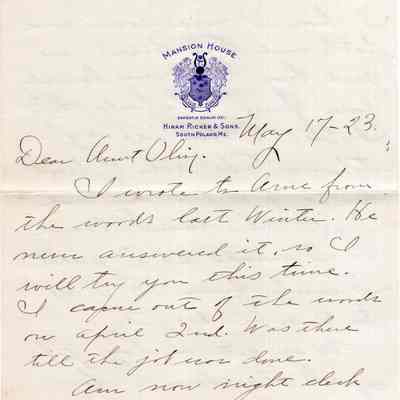 MANSION HOUSE
HIRAM RICKER & SONS.
SOUTH POLAND, ME.
May 17-23.
Dear Aunt Oliy.
I wrote to Arne from
the woods last Winter. He
never answered it, so I
will try you this time.
I came out of the woods
on april 2nd. Was there
till the job was done.
Am now night clerk